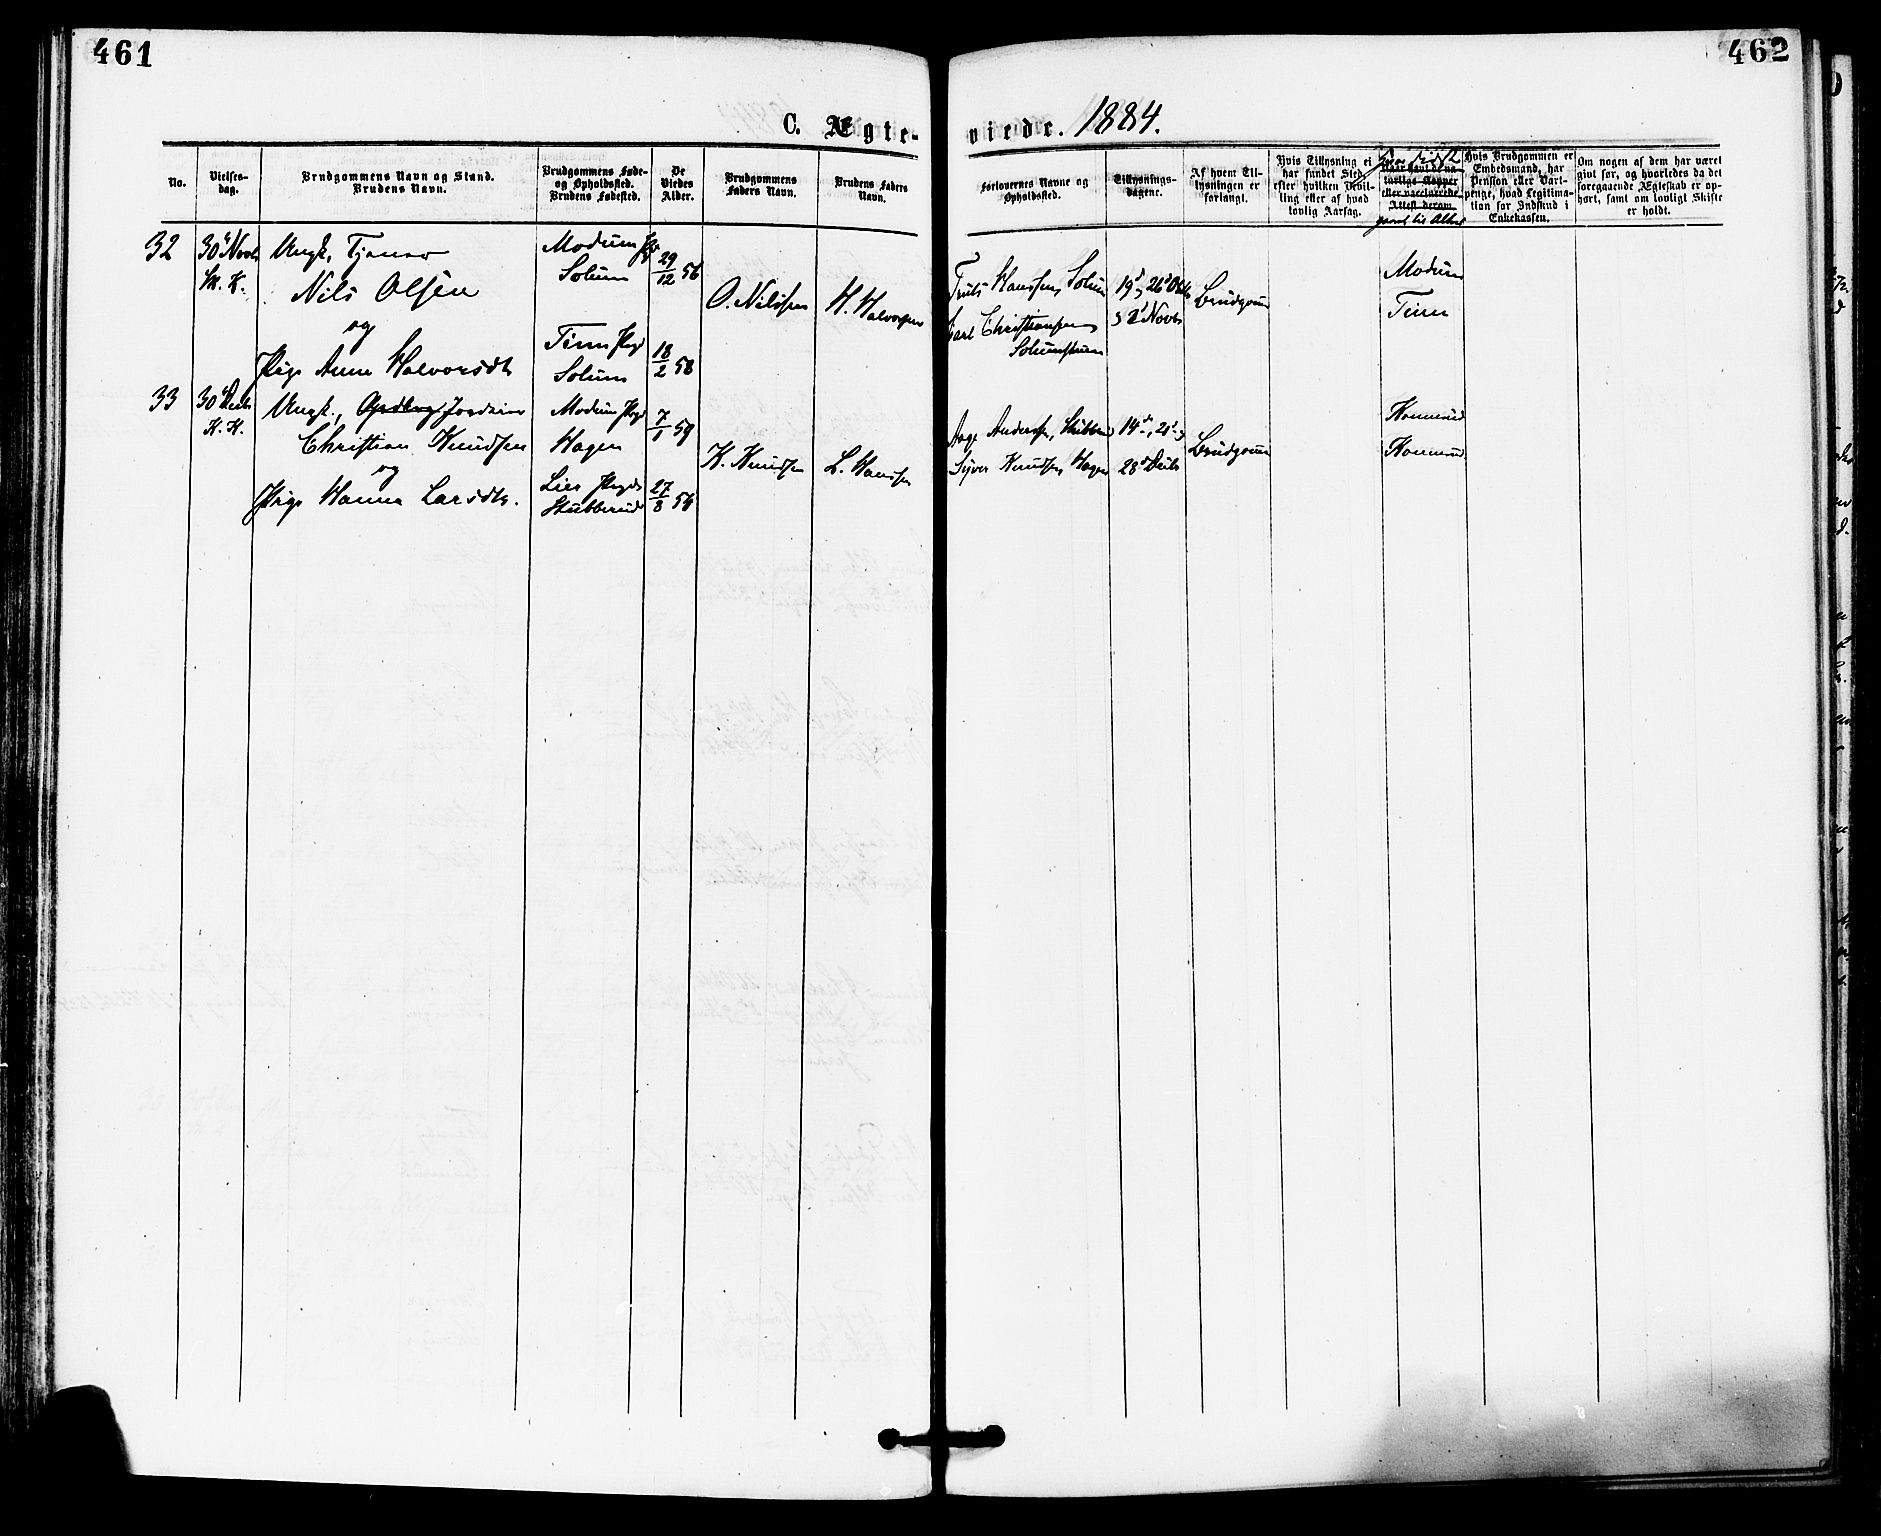 461
462
C. Ægte-
viede. 1884.
No.
Vielses-
dag.
Brudgommens Navn og Stand.
Brudens Navn.
Brudgommens Føde-
og Opholdssted.
Brudens Fødested.
De
Viedes
Alder.
Brudgommens
Faders Navn.
Brudens Faders
Navn.
Forlovernes Navne og
Opholdssted.
Tillysnings-
dagene.
Af hvem Til-
lysningen er
forlangt.
Hvis Tillysning ei
har fundet Sted,
efter hvilken Bevil-
ling eller af hvad
lovlig Aarsag.
Naar havt de na-
turlige Kopper
eller vaccinerede.
Attest derom.
Hvis Brudgommen er
Embedsmand, har
Pension eller Vart-
penge, hvad Legitima-
tion for Indskud i
Enkekassen.
Om nogen af dem har været
gift før, og hvorledes da det
foregaaende Ægteskab er op-
hørt, samt om lovligt Skifte
er holdt.
32
30' Novb
Ungk. Tjener
Nils Olsen
og
Pige Anne Halvorsdt
Modum
Solum
Solum
29/12 56
18/2 58
O. Nilssen
H. Halvorsen
Truls Hanssen, Solum
Carl Christiansen
19', 26' Oktb
& 2' Novb
Brudgom
Modum
33
30' Decb
K. K.
Ungk.,
Christian Knudsen
og
Pige Hanna Larsdt.
Modum
Hagen
Lier
Stubberud
7/1 59
27/8 56
K. Knudsen
L. Hanssen
Aage Anderssen,
Syver Knudssen, Hagen
14', 21' &
28' Decb
Brudgom